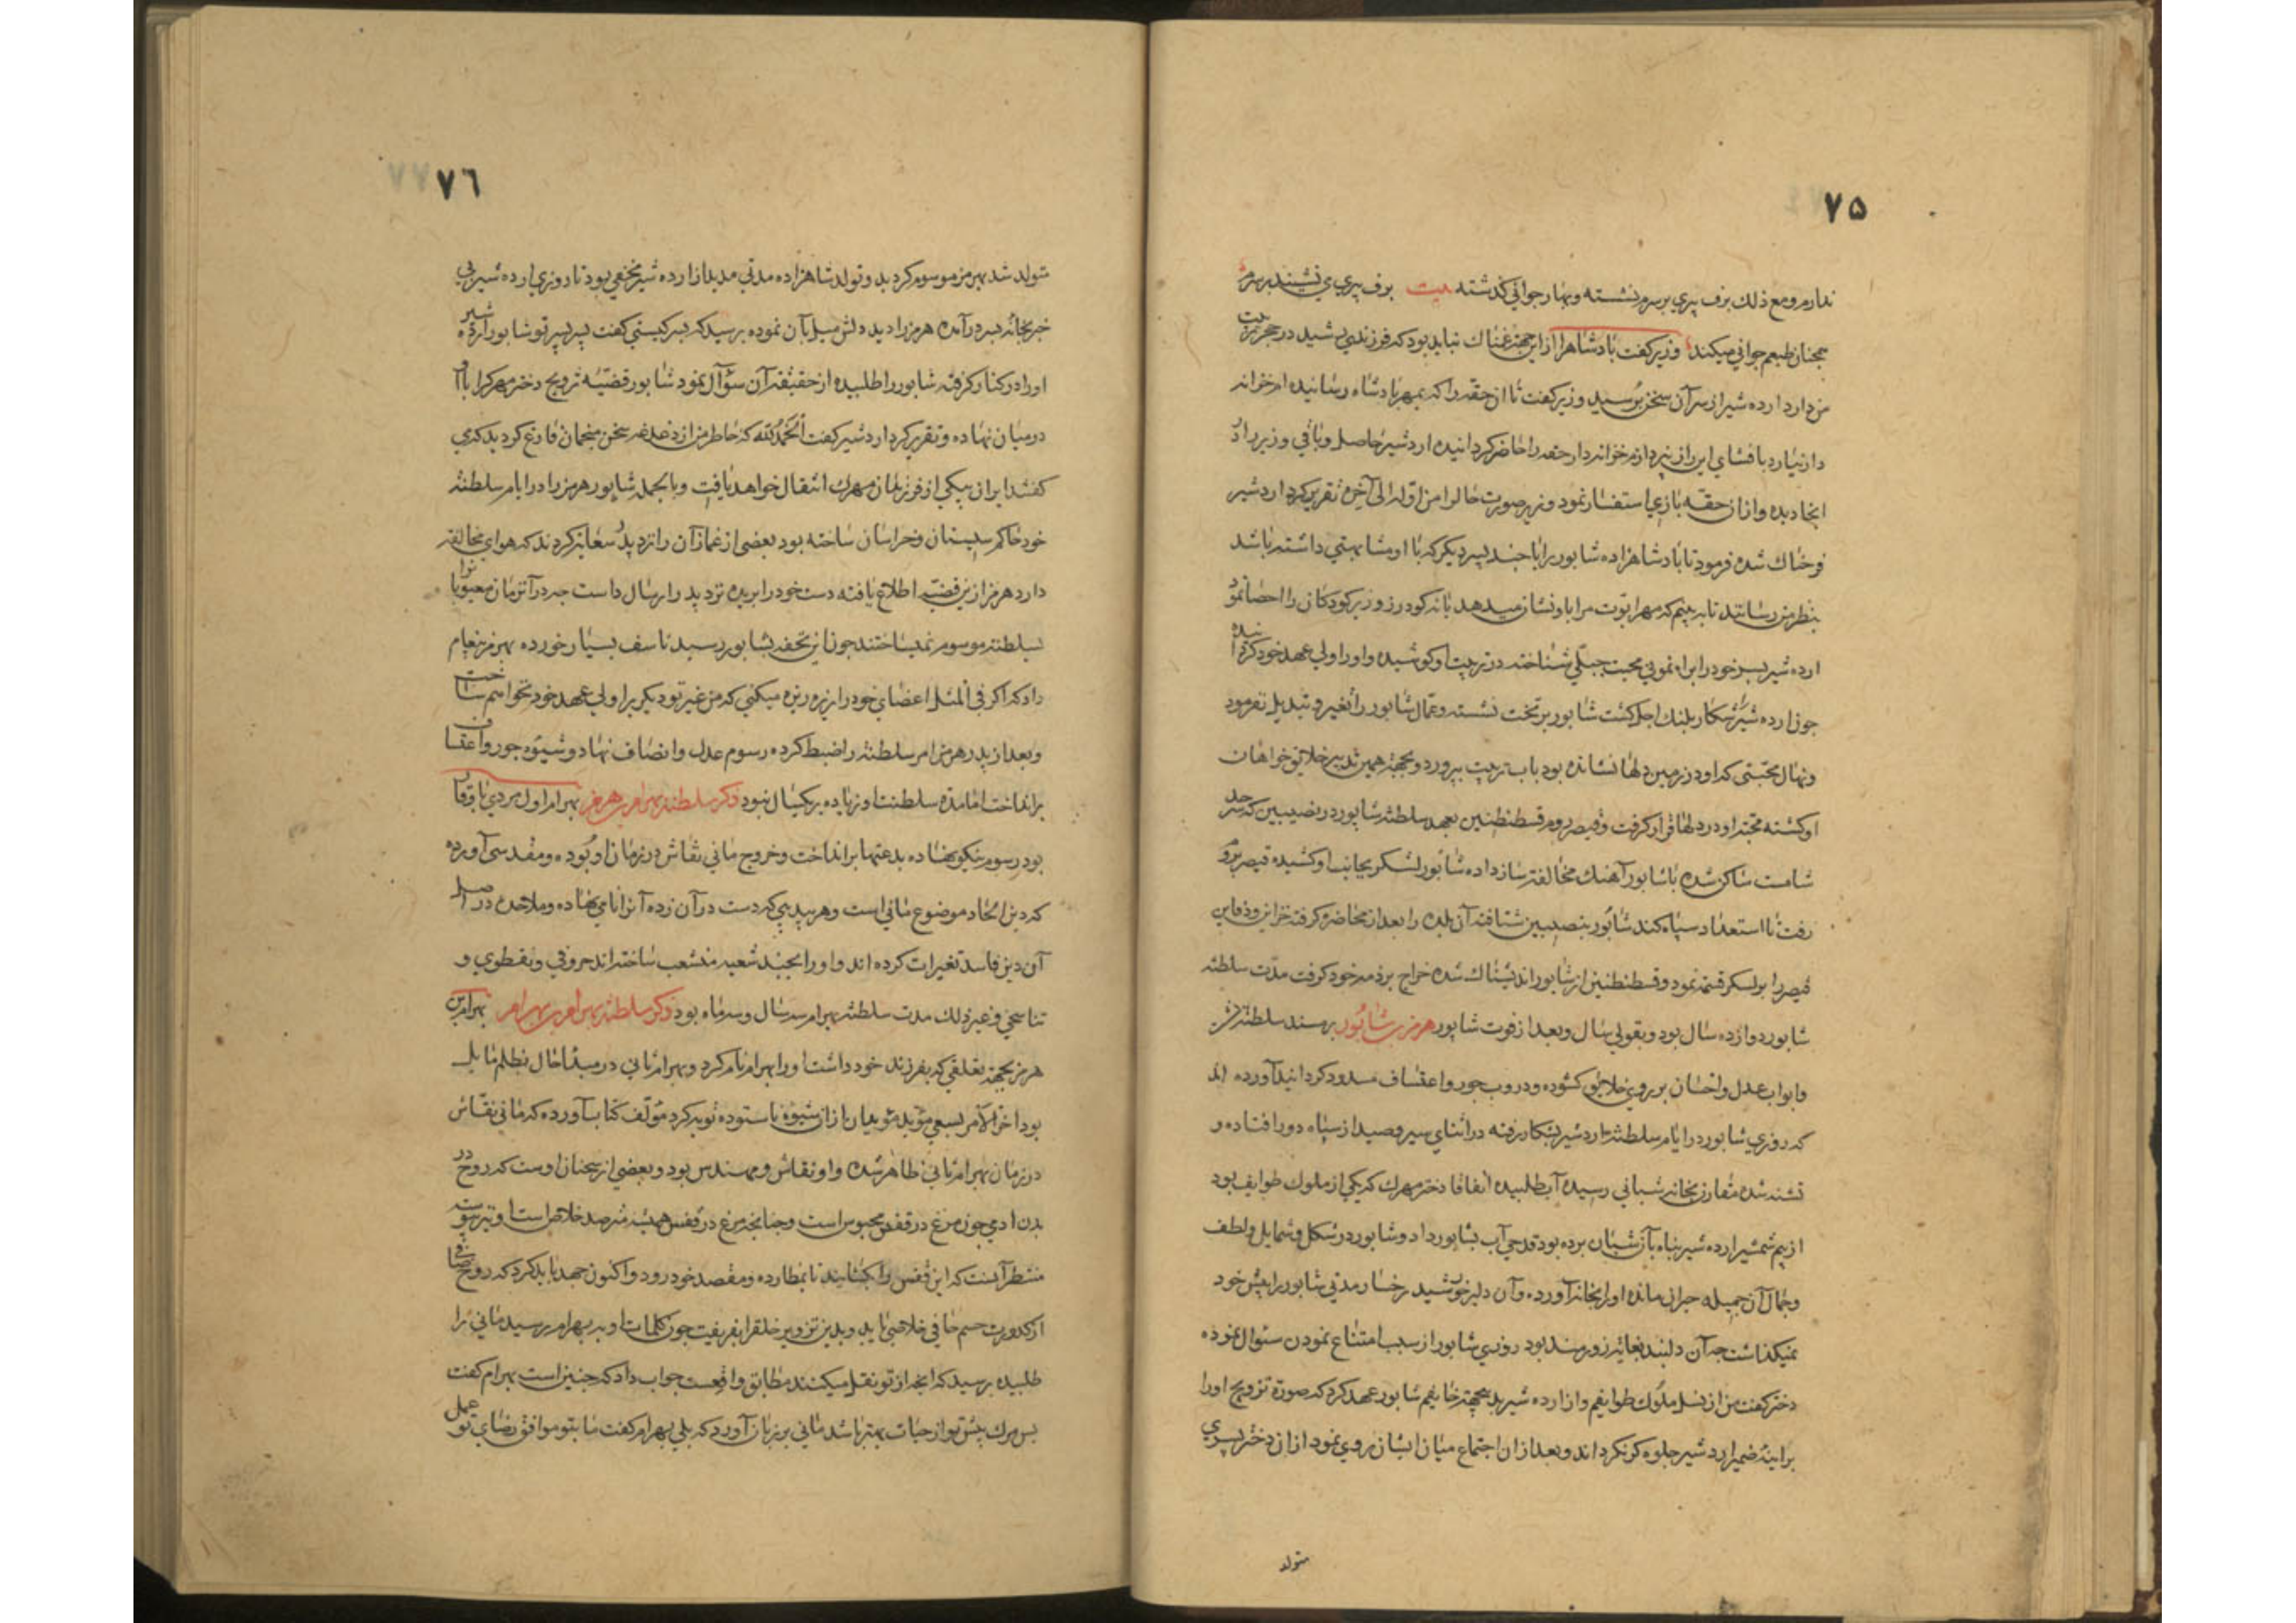 ۷۵
ندارم و مع ذلك برف پیری بر سرم نشسته و بهار جوانی کذشته بیت برف پیری می نشیند بر سرم
همچنان طبعم جوانی میکند وزیر کفت پادشاه را از این جهة غمناك نباید بود که فرزندی رشید در حجر تربیت
من دارد ارده شیر از سر آن سخن پرسید وزیر کفت تا ان حقه را که بمهر پادشاه رسانیده ام خزانه
دار بیارد بافشای این راز بپردازم خزانه دار حقه را حاضر کردانیده اردشیر حاصل و باقی وزیر را در
انجا دیده و از ان حقه بازی استفسار نمود وزیر صورت حال را من اوله الی آخره تقریر کرد اردشیر
فرحناك شده فرمود تا پادشاهزاده شابور را با چند پسر دیکر که با او مشابهتی داشته باشد
بنظر من رسانند تا به بینم که مهر ابوت مرا باو نشان میدهد یا نه کودرز وزیر کودکان را احضار نمود
ارده شیر پسر خود را براه نمونی محبت جبلی شناخته در تربیت او کوشیده و او را ولی عهد خود کردانیده
چون ارده شیر شکار پلنك اجل کشت شابور بر تخت نشسته و عمال شابور را تغیر و تبدیل نفرمود
و نهال محبتی که او در زمین دلها نشانده بود باب تربیت بپرورد و بجهة همین تدبیر خلایق خواهان
او کشته محبة او در دلها قرار کرفت و قیصر روم قسطنطنین بعهد سلطنة شابور در نصیبین که سرحد
شامست ساکن شده با شابور آهنك مخالفة ساز داده شابور لشکر بجانب او کشیده قیصر بروم
رفت تا استعداد سپاه کند شابور بنصیبین شتافته آن بلده را بعد از محاصره کرفته خزاین و دفاین
قیصر را بر لسکر قسمة نمود و قسطنطنین از شابور اندیشناك شده خراج بر ذمه خود کرفت مدت سلطنه
شابور دوازده سال بود و بقولی سال و بعد از فوت شابور هرمز بن شابور بر مسند سلطنة نشست
و ابواب عدل و احسان بر روی خلایق کشوده و دروب جور و اعتساف مسدود کردانید آورده اند
که روزی شابور در ایام سلطنة اردشیر بشکار رفته در اثنای سیر و صید از سپاه دور افتاده و
تشنه شده مقارن بخانه شبانی رسیده آب طلبیده اتفاقا دختر مهرك که یکی از ملوك طوایف بود
از بیم شمشیر ارده شیر پناه بآن شبان برده بود قدحی آب بشابور داد و شابور در شکل و شمایل و لطف
و جمال آن جمیله حیران مانده او را بخانه آورده و آن دلبر خورشید رخسار مدتی شابور را پیش خود
نمیکذاشت چه آن دلبند بغایة زورمند بود روزی شابور از سبب امتناع نمودن سئوال نموده
دختر کفت من از نسل ملوك طوایفم و از ارده شیر بدین جهة خایفم شابور عهد کرد که صورة تزویج او را
بر اینه ضمیر ارد شیر جلوه کر نکرداند و بعد از ان اجتماع میان ایشان روی نمود از ان دختر پسری
متولد
۷٦
متولد شد بهرمز موسوم کردید و تولد شاهزاده مدتی مدید از ارده شیر مخفی بود تا روزی ارده شیر بی
خبر بخانه پسر درآمده هرمز را دید دلش میل بآن نموده پرسید که پسر کیستی کفت پسر پسر تو شابور ارده شیر
او را در کنار کرفته شابور را طلبیده از حقیقة آن سؤآل نمود شابور قضیه تزویج دختر مهرك را با او
در میان نهاده و تقریر کرد اردشیر کفت الحمد لله که خاطر من از دغدغه سخن منجمان فارغ کردید که می
کفتند ایران بیکی از فرزندان مهرك انتقال خواهد یافت و بالجمله شابور هرمز را در ایام سلطنة
خود حاکم سیستان و خراسان ساخته بود بعضی از غمازآن را نزد پدر سعایة کردند که هوای مخالفة
دارد هرمز از ین قضیه اطلاع یافته دست خود را بریده نزد پدر ارسال داشت چه در آنزمان معیوبانرا
بسلطنة موسوم نمیساختند چون این تحفه بشابور رسید تاسف بسیار خورده بهرمز پیغام
داد که اکر فی المثل اعضای خود را ریزه ریزه میکنی که من غیر تو دیکریرا ولی عهد خود نخواهم ساخت
و بعد از پدر هرمز امر سلطنة را ضبط کرده رسوم عدل و انصاف نهاد و شیوه جور و اعتساف
برانداخت اما مدة سلطنت او زیاده بر یکسال نبود ذکر سلطنة بهرام بن هرمز بهرام اول مردی با وقار
بود رسوم نیکو نهاده بدعتها برانداخت و خروج مانی نقاش در زمان او بوده و مقدسی آورده
که دین الحاد موضوع مانی است و هر بیدینی که دست در آن زده آنرا نامی نهاده و ملاحده در اصل
آن دین فاسد تغیرات کرده اند و او را بچند شعبه منشعب ساخته اند حروفی و نقطوی و
تناسخی و غیر ذلك مدت سلطنة بهرام سه سال و سه ماه بود ذکر سلطنة بهرام بن بهرام بهرام بن
هرمز بجهة تعلقی که بفرزند خود داشت او را بهرام نام کرد و بهرام ثانی در مبدا حال بظلم مایل
بود اخر الامر بسعی مؤبد مؤبدان از ان شیوه ناستوده توبه کرد مؤلف کتاب آورده که مانی نقاش
در زمان بهرام ثانی ظاهر شده و او نقاش و مهندس بود و بعضی از سخنان اوست که روح در
بدن ادمی چون مرغ در قفص محبوس است و چنانچه مرغ در قفس همیشه مترصد خلاص است او نیز
منتظر آنست که این قفس را بکشایند تا بمطارده و مقصد خود رود و اکنون جهد باید کرد که روح صافی
از کدورت جسم جافی خلاصی یابد و بدین تزویر خلقرا بفریفت چون کلمات او به بهرام رسید مانی را
طلبیده پرسید که انچه از تو نقل میکنند مطابق واقعست جواب داد که چنین است بهرام کفت
پس مرك پیش تو از حیات بهتر باشد مانی بر زبان آورد که بلی بهرام کفت ما بتو موافق رضای تو عمل